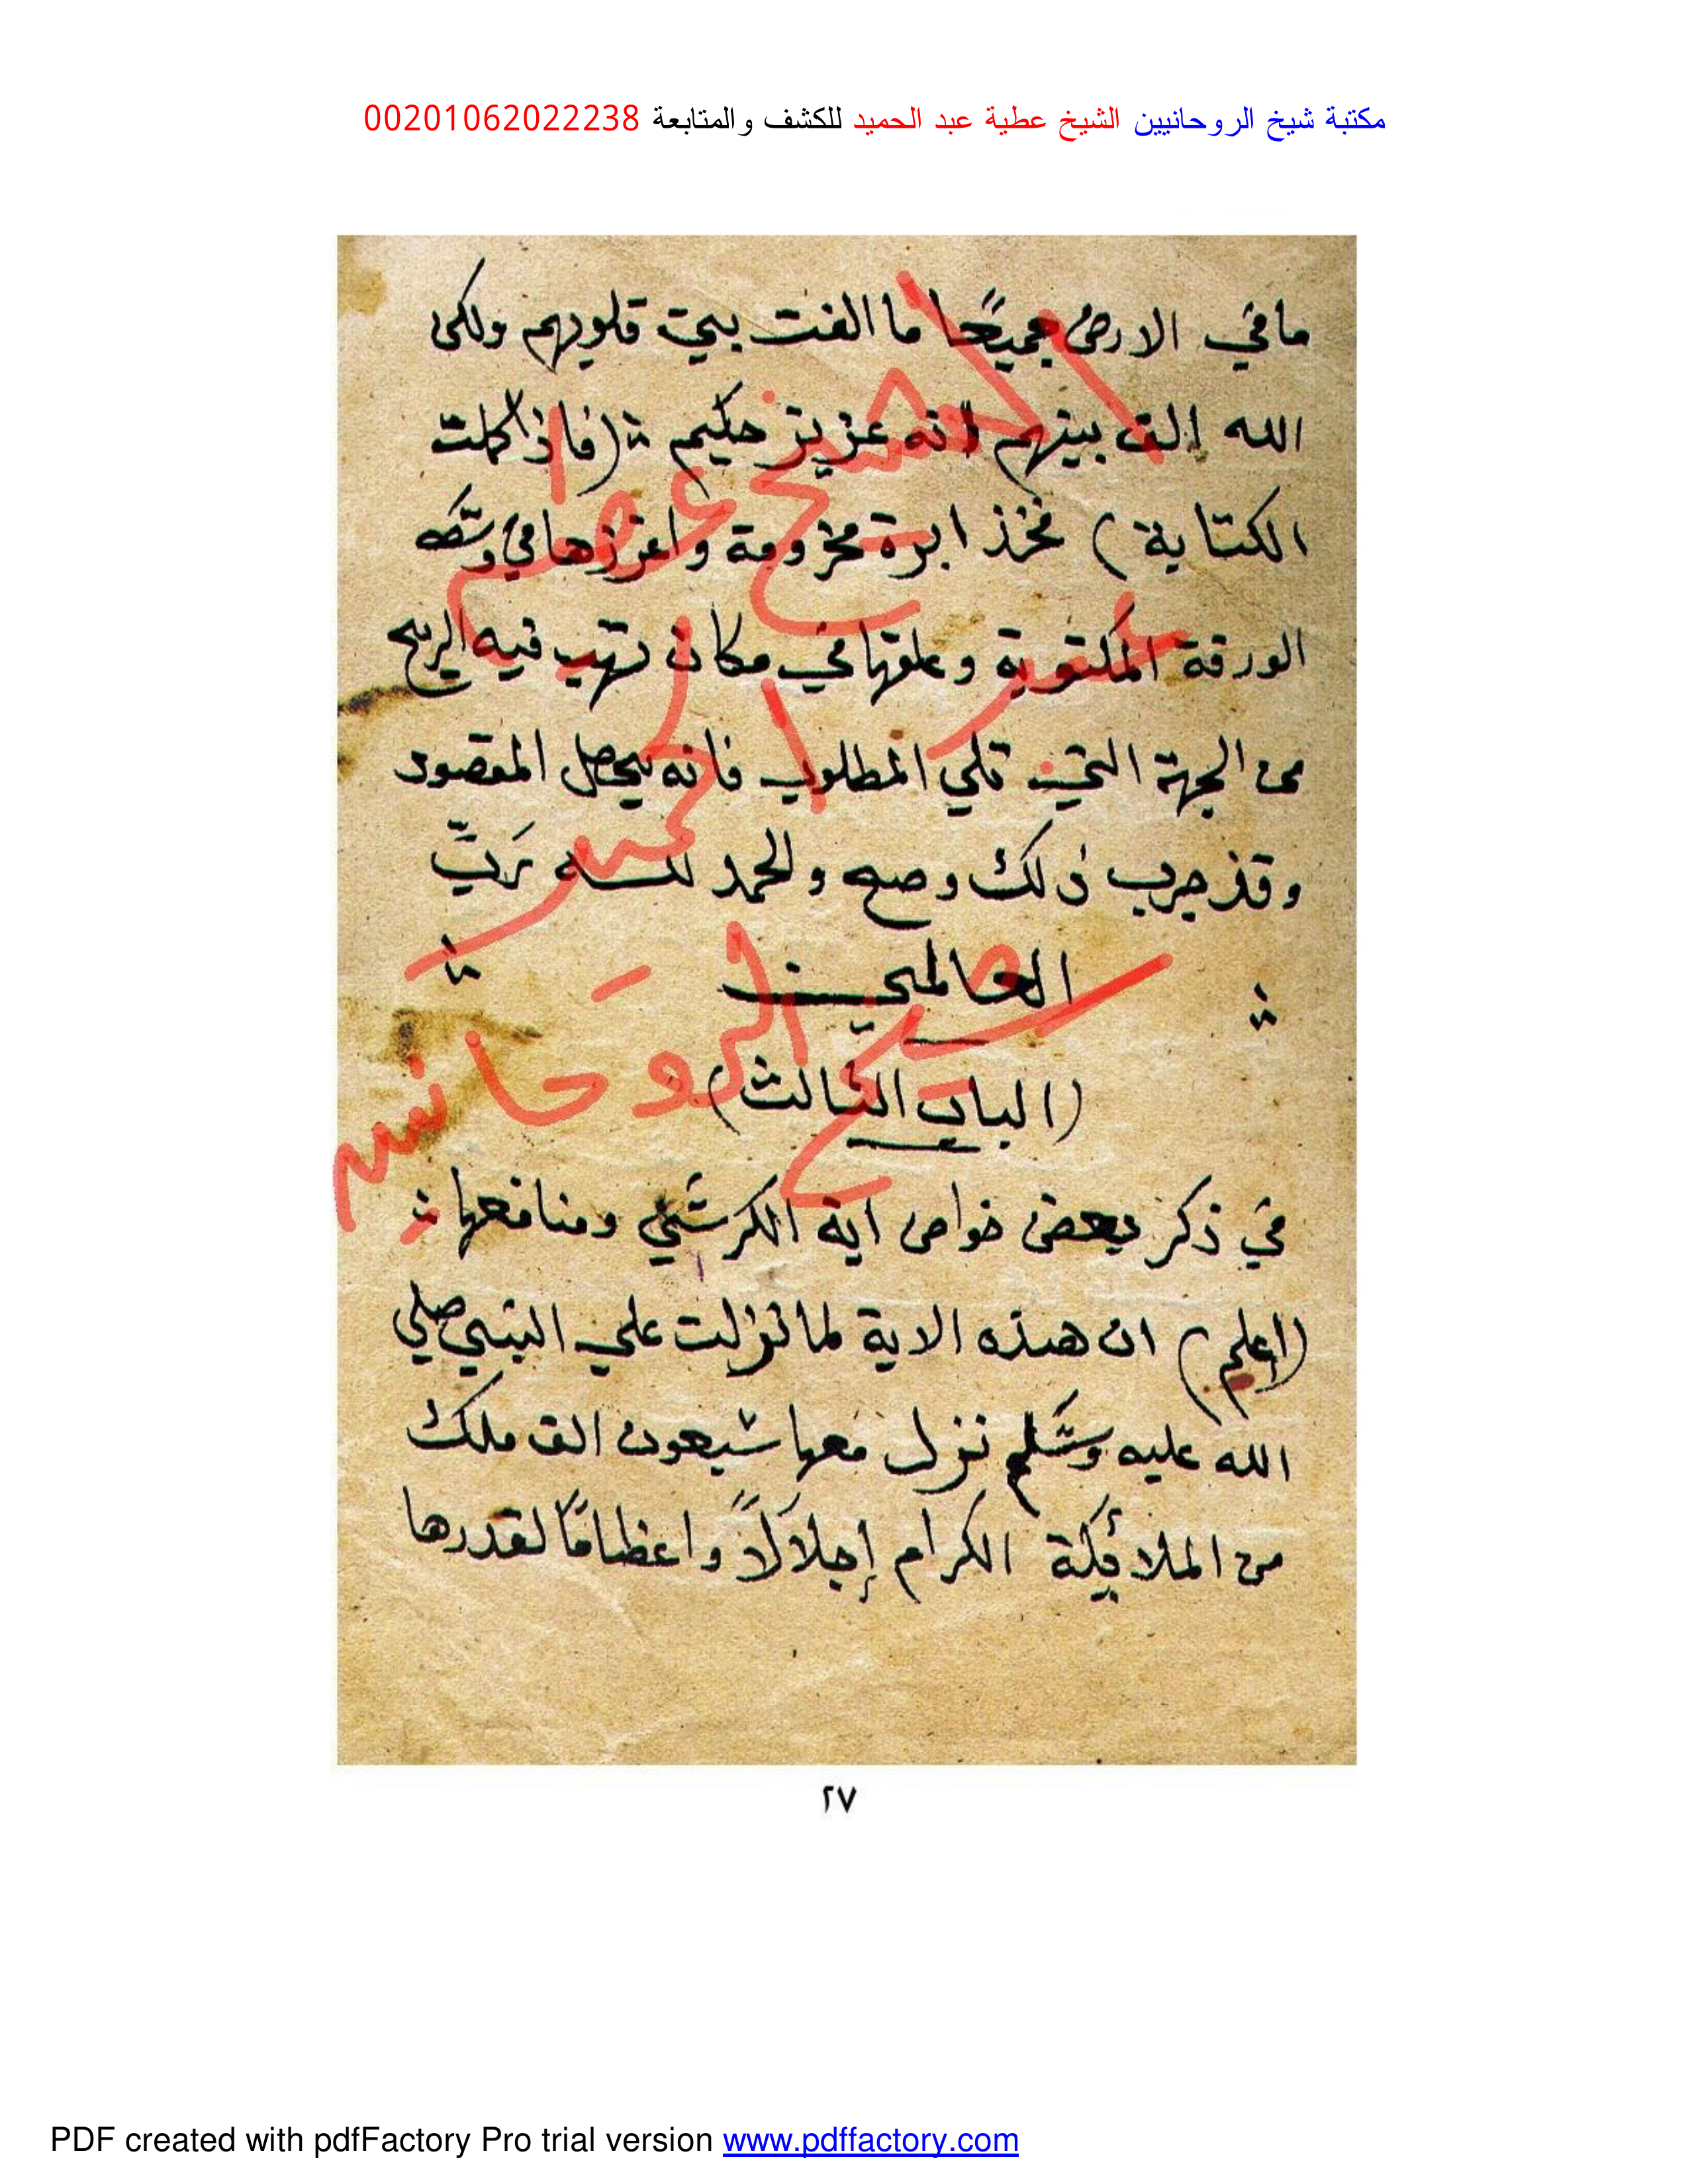 مكتبة شيخ الروحانيين الشيخ عطية عبد الحميد للكشف والمتابعة 00201062022238
ما في الارض جميعًا ما الفت بين قلوبهم ولكن
الله الف بينهم انه عزيز حكيم (فاذا كملت
الكتابة) فخذ ابرة مخزومة واغرزها في وسّطه
الورقة المكتوبة وعلقها في مكان تهب فيه الريح
من الجهة التي تلي المطلوب فانه يحصل المقصود
وقد جرب ذلك وصح والحمد لله رَبِّ
العالمين
(الباب الثالث)
في ذكر بعض خواص اية الكرسّي ومنافعها
(اعلم) ان هذه الاية لما نزلت علي النبي صلي
الله عليه وسّلم نزل معها سبعون الف ملك
من الملائكة الكرام إجلالاً واعظامًا لقدرها
الشيخ عطية
عبد الحميد
شيخ الروحانيين
٢٧
PDF created with pdfFactory Pro trial version www.pdffactory.com